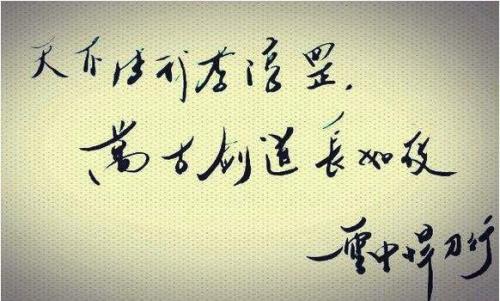 天不生我李淳罡,
萬古剑道長如夜
雪中悍刀行